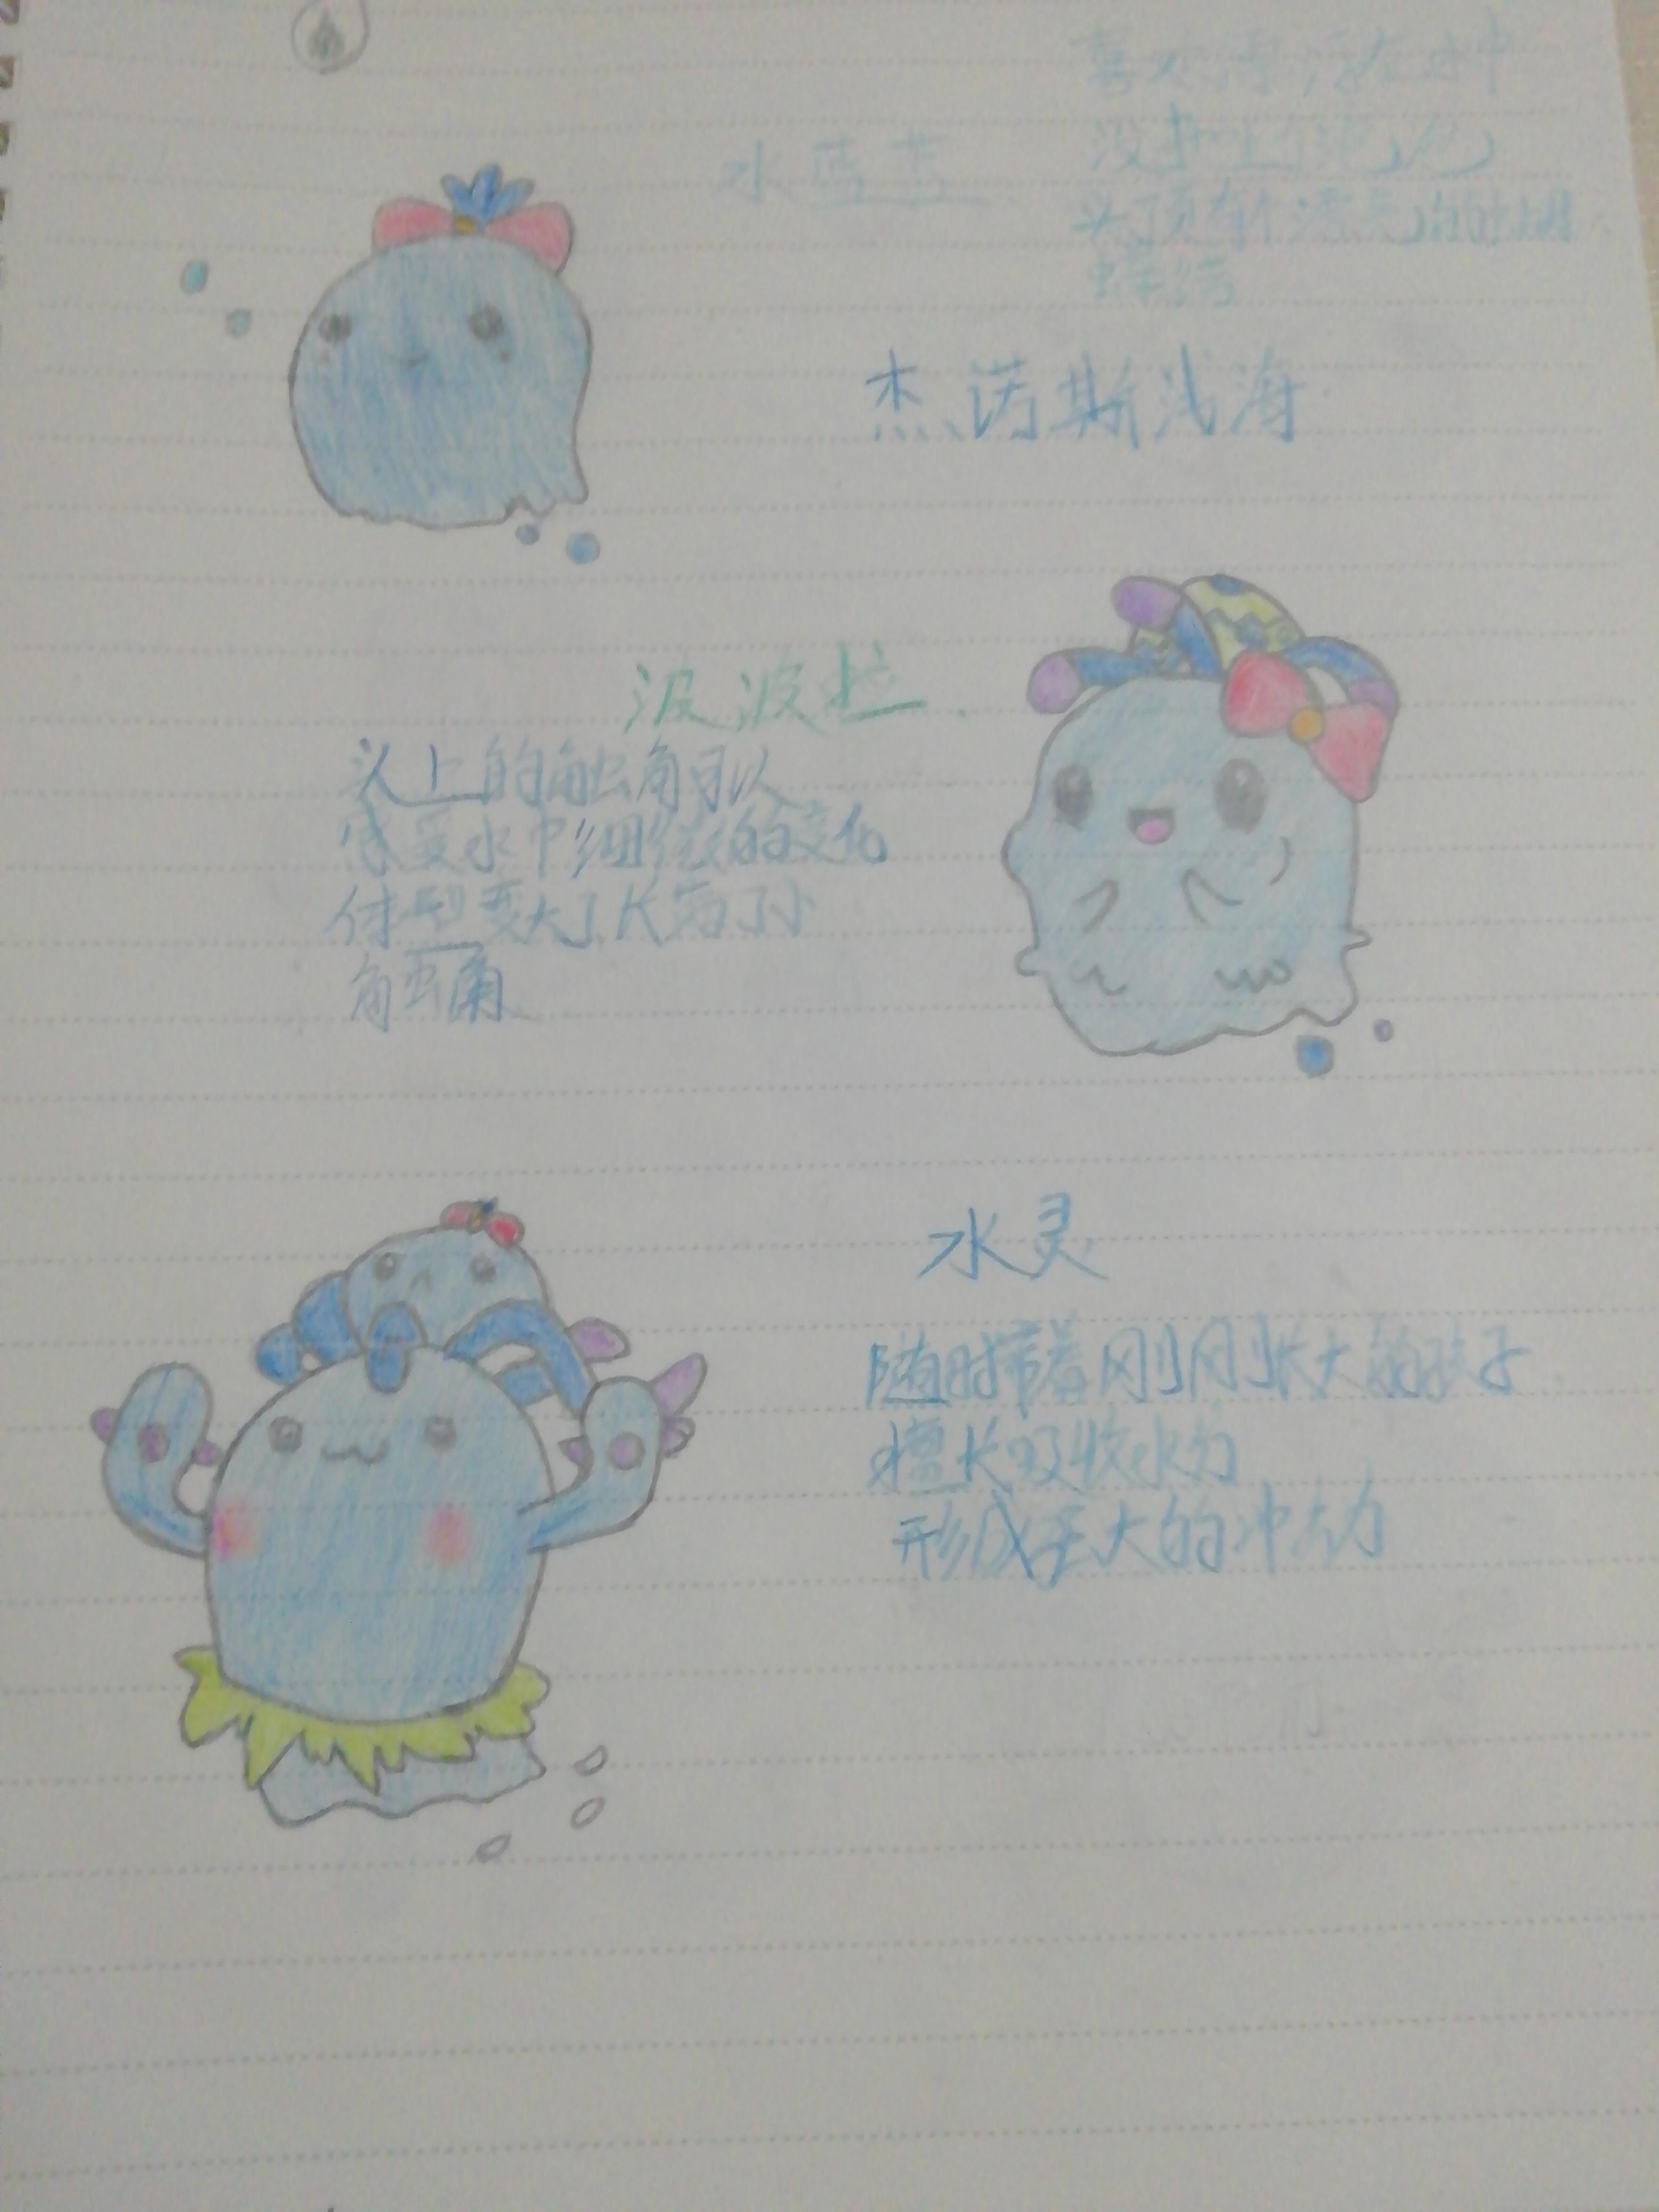 喜欢漂浮在水中
水蓝蓝
头顶有漂亮的蝴
蝶结
杰诺斯浅海
波波拉
头上的触角可以
感受水中细微的变化
体型变大了长满了小
触角
水灵
随时带着刚刚长大的孩子
擅长吸收水分
形成巨大的冲力